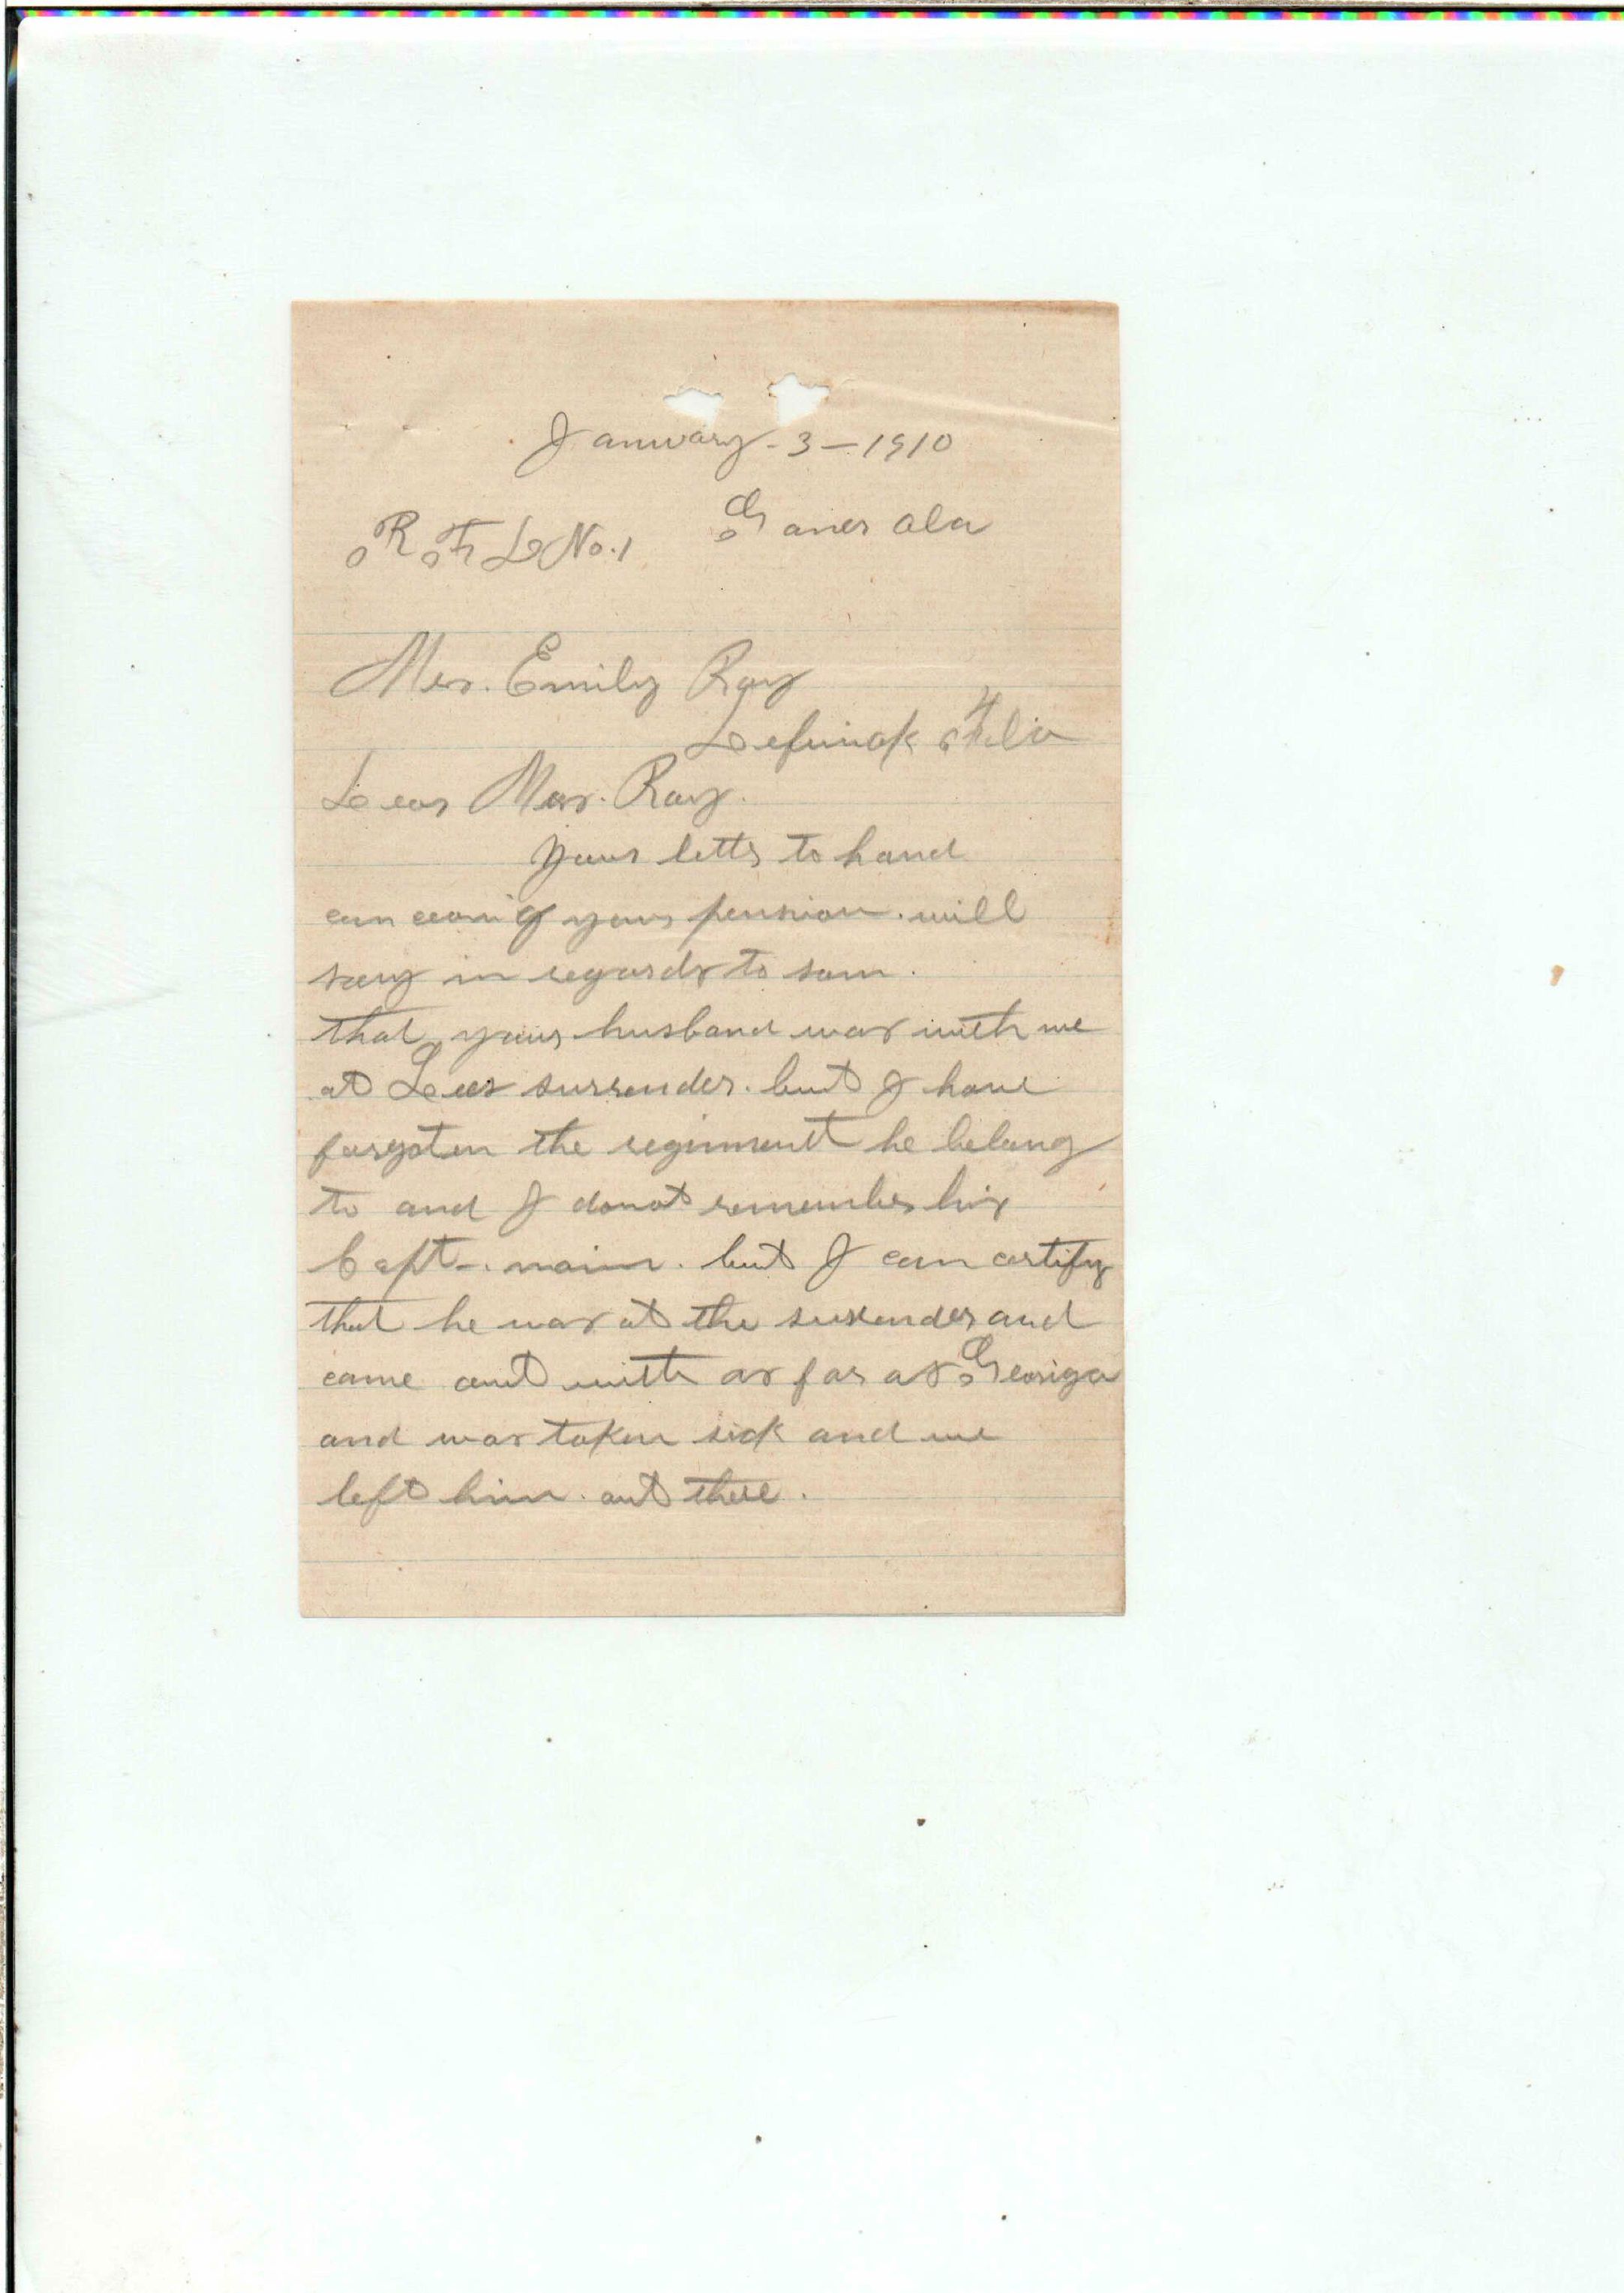 January - 3 - 1910
R F D No. 1 Ganer Ala
Mrs. Emily Ray
Defuniak Fla
Dear Mrs. Ray.
Your letter to hand
your pension. will
say in regards to sam.
that your husband was with me
at Lees surrender. but I have
forgoten the regiment he belong
to and I donot remember his
Capt-. naim. but I can certify
that he was at the surender and
came out with as far as Georiga
and was taken sick and we
left him. out there.